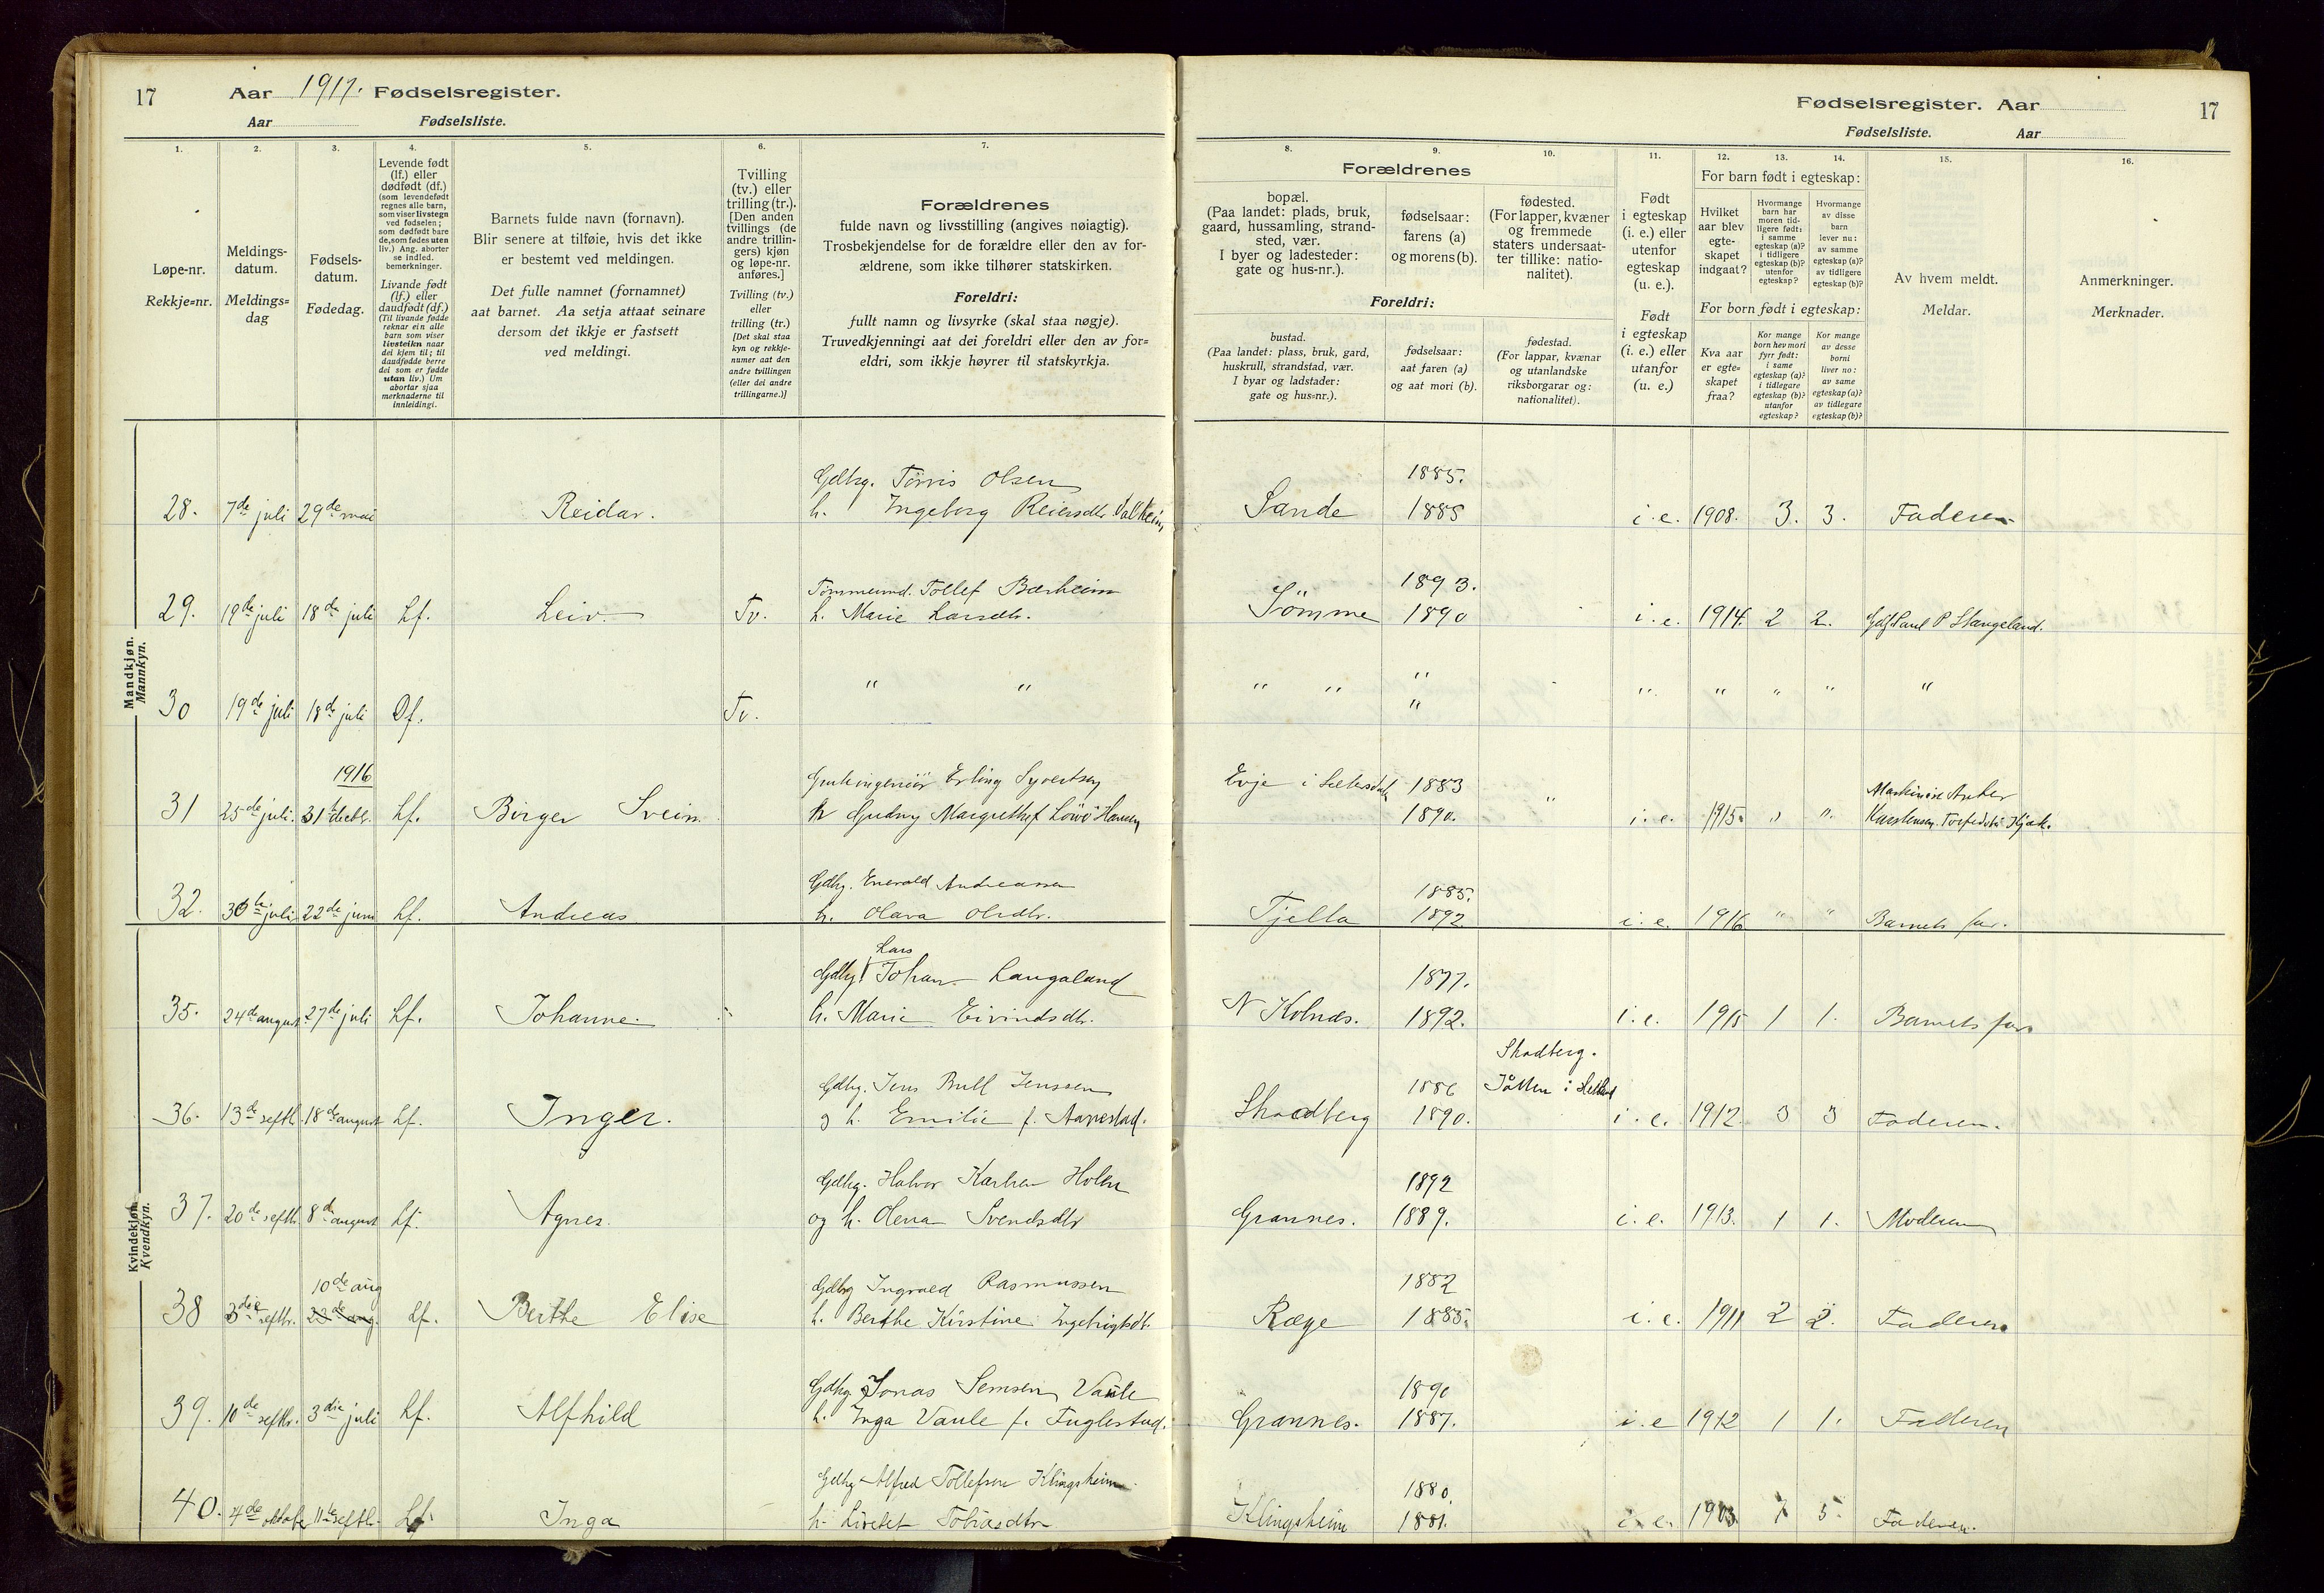 17 Aar 1917. Fødselsregister.
Aar Fødselsliste.
Fødselsregister. Aar 17
Fødselsliste. Aar
1. 2. 3. 4. 5. 6. 7. 8. 9. 10. 11. 12. 13. 14. 15. 16.
Løpe-nr.
Rekkje=nr.
Meldings-
datum.
Meldings=
dag
Fødsels-
datum.
Fødedag.
Levende født
(lf.) eller
dødfødt (df.)
(som levendefødt
regnes alle barn,
som viser livstegn
ved fødselen;
som dødfødt bare
de, som fødes uten
liv.) Ang. aborter
se indled.
bemerkninger.
Livande født
(lf.) eller
daudfødt (df.)
(Til livande fødde
reknar ein alle
barn som viser
livsteikn naar
dei kjem til; til
daudfødde berre
dei som er fødde
utan liv.) Um
abortar sjaa
merknaderne til
innleidingi.
Barnets fulde navn (fornavn).
Blir senere at tilføie, hvis det ikke
er bestemt ved meldingen.
Det fulle namnet (fornamnet)
aat barnet. Aa setja attaat seinare
dersom det ikkje er fastsett
ved meldingi.
Tvilling
(tv.) eller
trilling (tr.).
[Den anden
tvillings (de
andre trillin-
gers) kjøn
og løpe-nr.
anføres.]
Tvilling (tv.)
eller
trilling (tr.)
[Det skal staa
kyn og rekkje-
numer aat den
andre tvillingen
(eller dei andre
trillingarne.)]
Forældrenes
fulde navn og livsstilling (angives nøiagtig).
Trosbekjendelse for de forældre eller den av for-
ældrene, som ikke tilhører statskirken.
Foreldri:
fullt namn og livsyrke (skal staa nøgje).
Truvedkjenningi aat dei foreldri eller den av for=
eldri, som ikkje høyrer til statskyrkja.
Forældrenes
bopæl.
(Paa landet: plads, bruk,
gaard, hussamling, strand-
sted, vær.
I byer og ladesteder:
gate og hus-nr.).
fødselsaar:
farens (a)
og morens (b).
fødested.
(For lapper, kvæner
og fremmede
staters undersaat-
ter tillike: natio-
nalitet).
Foreldri:
bustad.
(Paa landet: plass, bruk, gard,
huskrull, strandstad, vær.
I byar og ladstader:
gate og hus=nr.).
fødselsaar:
aat faren (a)
og aat mori (b).
fødestad.
(For lappar, kvænar
og utanlandske
riksborgarar og:
nationalitet).
Født
i egteskap
(i. e.) eller
utenfor
egteskap
(u. e.).
Født
i egteskap
(i. e.) eller
utanfor
(u. e.)
For barn født i egteskap:
Hvilket
aar blev
egte-
skapet
indgaat?
Hvormange
barn har
moren tid-
ligere født:
i samme
egteskap (a)?
i tidligere
egteskap (b)?
utenfor
egteskap?
Hvormange
av disse
barn
lever nu:
av samme
egteskap (a)?
av tidligere
egteskap (b)?
For born født i egteskap:
Kva aar
er egte=
skapet
fraa?
Kor mange
born hev mori
fyrr født:
i same
egteskap (a)?
i tidlegare
egteskap (b)?
utanfor
egteskap?
Kor mange
av desse
borni
liver no:
av same
egteskap (a)?
av tidlegare
egteskap (b)?
Av hvem meldt.
Meldar.
Anmerkninger.
Merknader.
Mandkjøn.
Mannkyn.
Gdbg. Tørris Olsen 1885.
28. 7de juli 29de mai Reidar. h. Ingeborg Reiersdtr. Valheim Sande 1885 i. e. 1908. 3. 3. Faderen
Tømmermd. Tollef Bærheim 1893.
29. 19de juli 18de juli Lf. Leiv. Tv. h. Marie Larsdtr. Sömme 1890 i. e. 1914. 2 2. Paul P Stangeland.
30 19de juli 18de juli Df. Tv. " " " " " " " " " " "
1916
Erling Syvertsen Evje i Sætersdal 1883
31 25de juli. 31te decbr. Lf. Birger Svein. h Gudny Margrethe f. Löwö Hansen 1890. i. e. 1915. " "
Gdbg. Enevald Andreassen 1885.
32. 30te juli 22de juni Lf. Andreas h. Olava Olsdtr. Tjelta 1892. i. e. 1916 " " Barnets far.
Kvindekjøn.
Kvendkyn.
Lars
Gdbg. Johan Langaland 1877.
35. 24de august 27de juli Lf. Johanne. h. Marie Eivindsdtr. N Kolnæs. 1892. i. e. 1915 1 1. Barnets far
Gdbg. Jens Bull Jenssen 1886 Skadberg. Jåtten i Hetland
36. 13de septb. 18de august Lf. Inger. og h. Emilie f. Aarrestad. Skadberg 1890. i. e. 1912. 3 3 Faderen.
Gdbg. Halvor Karlsen Holen 1892
37. 20de septb. 8de august Lf. Agnes. og h. Olena Svendsdtr Grannes. 1889. i. e. 1913. 1 1. Moderen
10de aug Gdbg Ingvald Rasmussen 1882
38 3die septbr. 23de aug. Lf. Berthe Elise h. Berthe Kirstine Ingebrigtsdt. Ræge 1885. i. e. 1911 2 2. Faderen
Gdbg. Jonas Semsen Vaule 1890
39. 10de septbr. 3die juli Lf. Alfhild h. Inga Vaule f. Fuglestad. Grannes. 1887. i. e 1912 1 1. Faderen
Gdbg. Alfred Tollefsen Klingsheim 1880.
40. 4de oktober 11te septb. Lf. Inga h. Livetet Tobiasdtr. Klingsheim 1881. i. e. 1903. 7 5. Faderen.